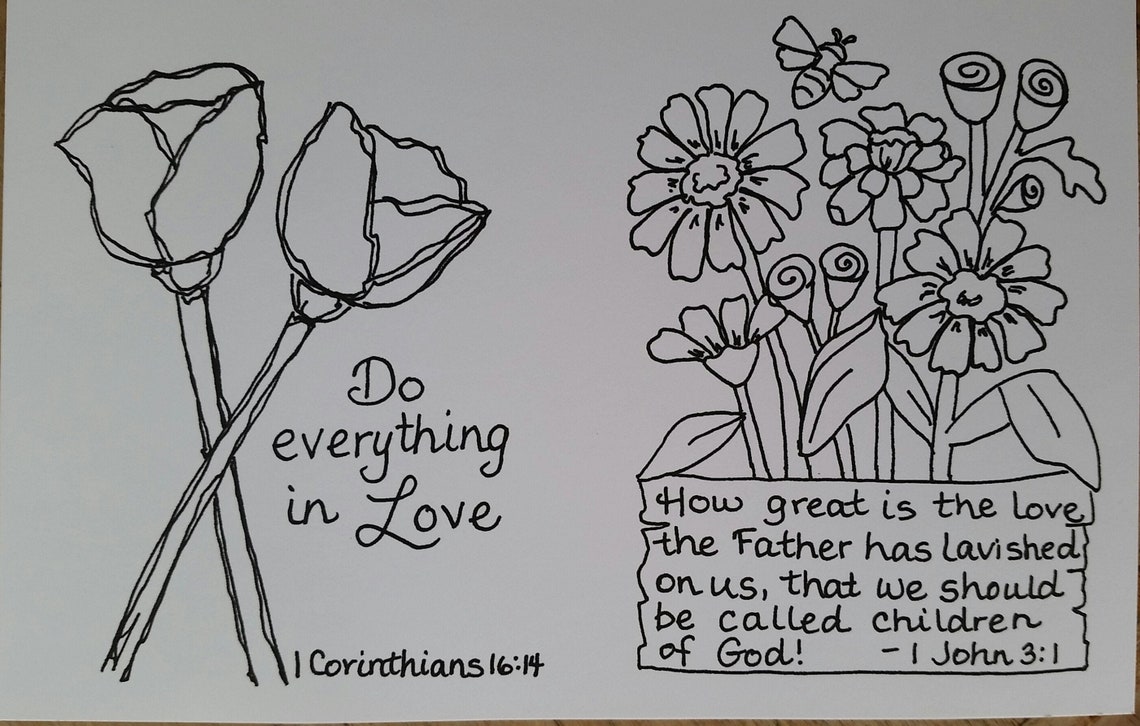 Do
everything
in Love
1 Corinthians 16:14
How great is the love
the Father has lavished
on us, that we should
be called children
of God! - 1 John 3:1